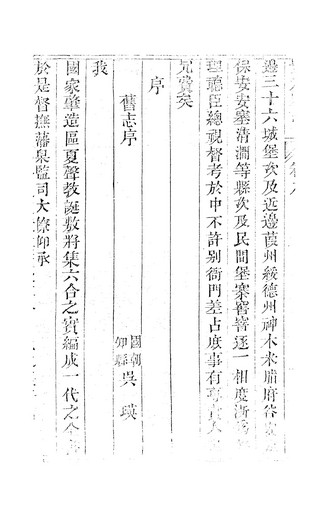 邊三十六城堡矣及近邊葭州綏德州神木米脂府谷
保安安塞清澗等縣矣及民間堡寨窖窰逐一相度漸爲
理聽臣總視督考於中不許別衙門差占庶事有專責人
冗費矣
序
舊志序
國朝知縣吳瑛
我
國家肇造區夏聲教誕敷將集六合之寶編成一代之全
於是督撫藩臬監司大僚仰承